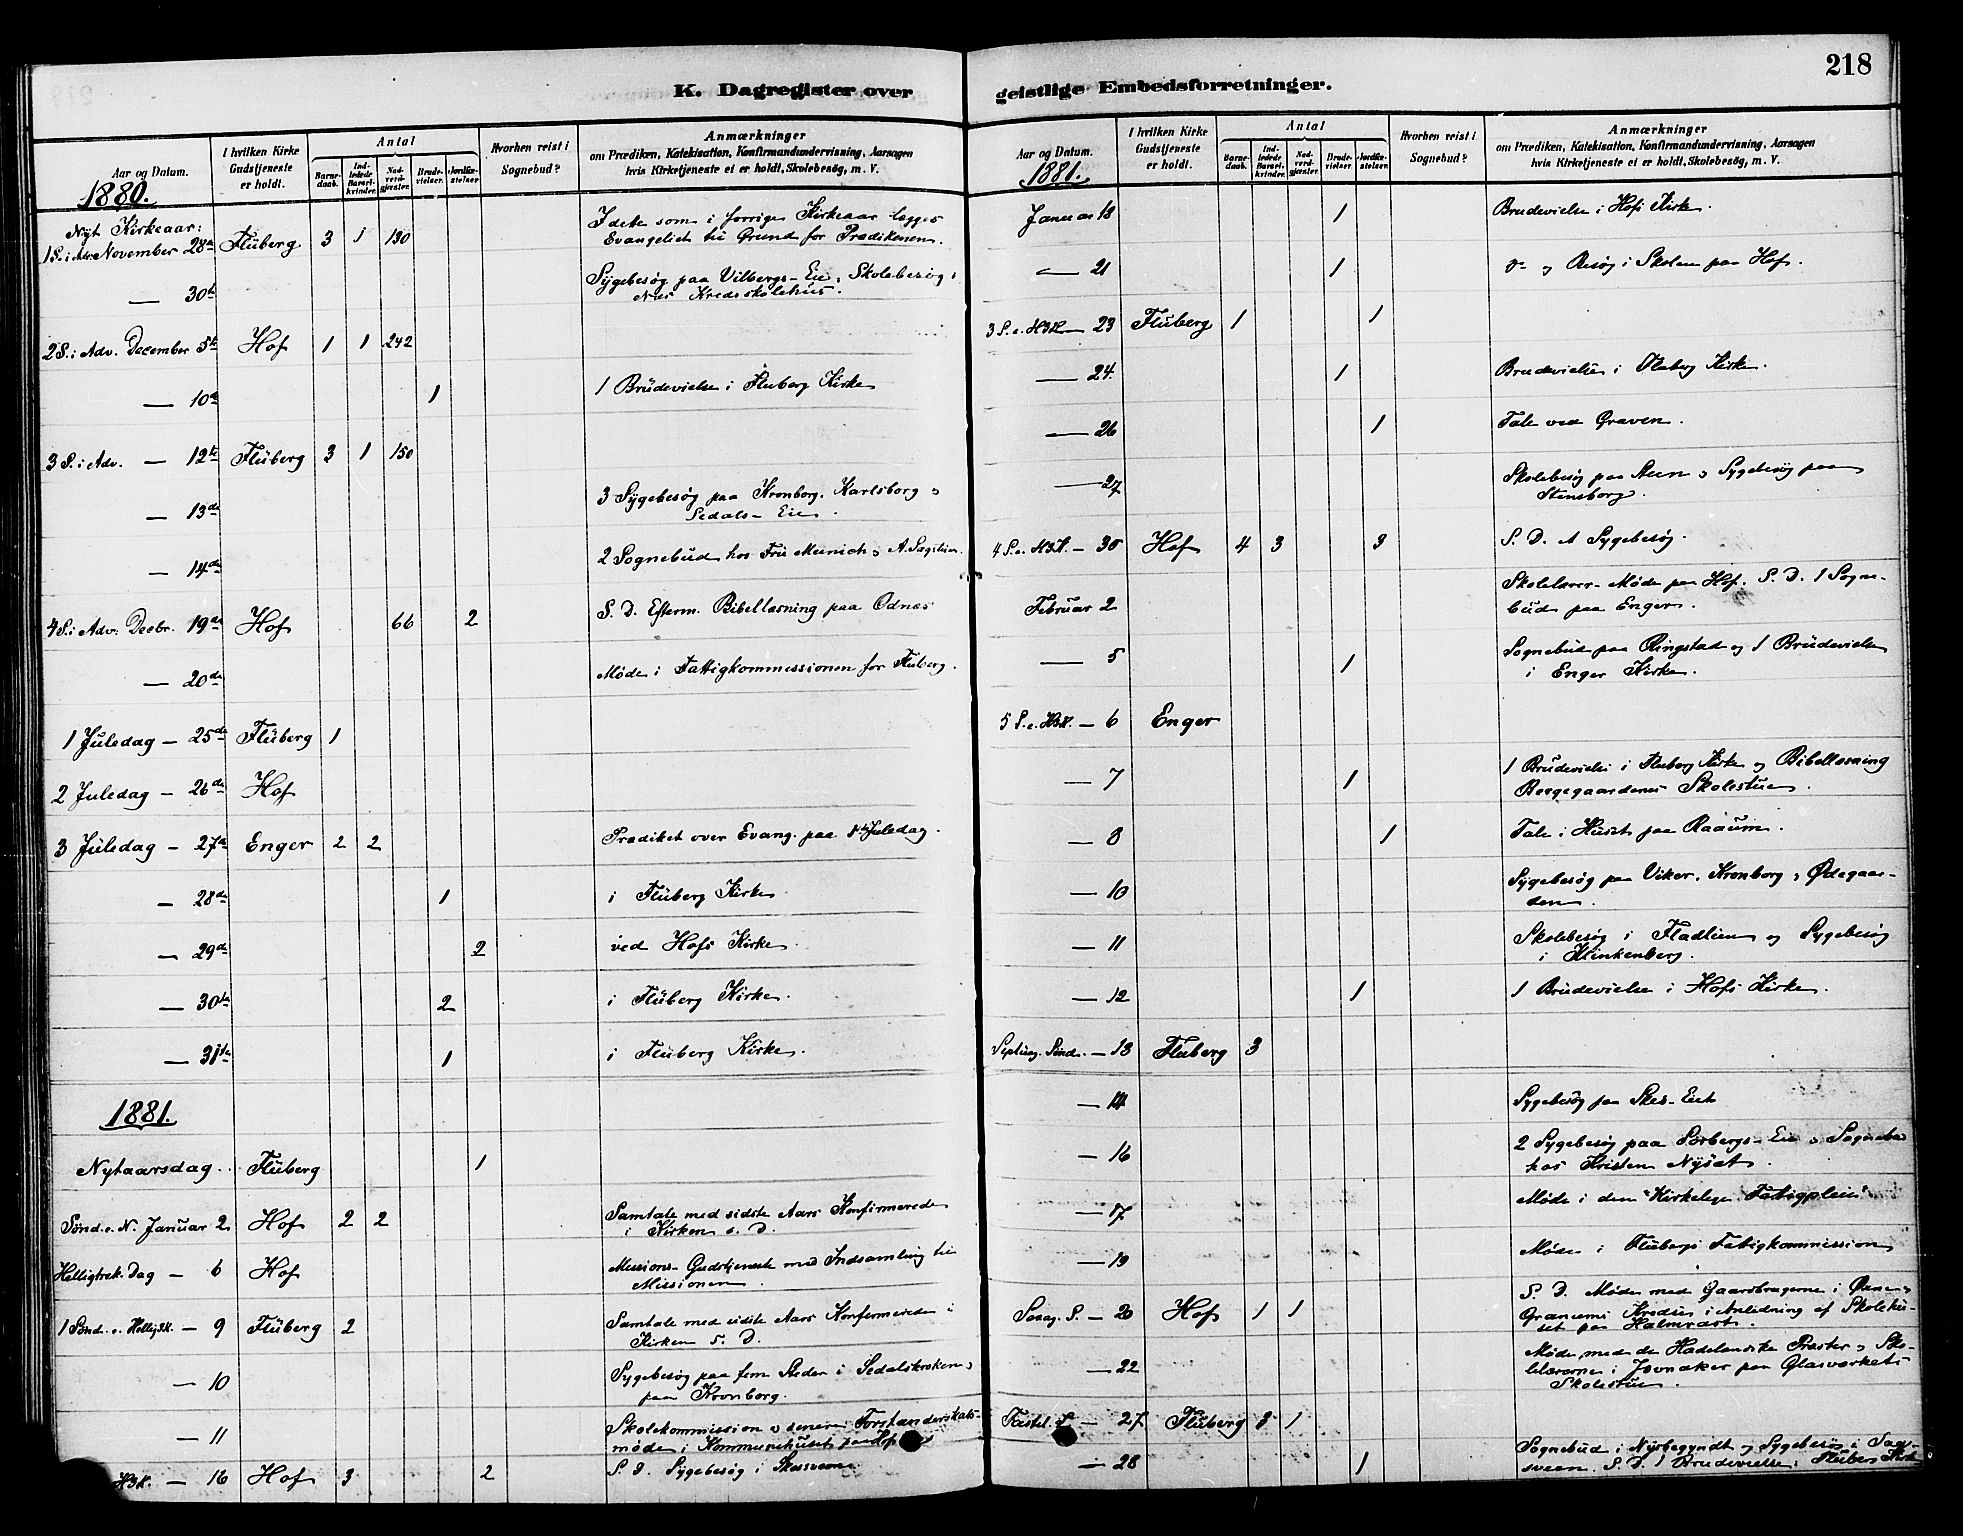 218
K. Dagregister over geistlige Embedsforretninger.
Aar og Datum.
I hvilken Kirke Gudstjeneste er holdt.
Antal
Barnedaab.
Indledede Barselkvinder.
Nadverdgjæster.
Brudevielser.
Jordfæstelser.
Hvorhen reist i Sognebud?
Anmærkninger
om Prædiken, Katekisation, Konfirmandundervisning, Aarsagen
hvis Kirketjeneste ei er holdt, Skolebesøg, m. V.
1880.
Nyt Kirkeaar:
1 S. i Adv. November 28de Fluberg 3 1 130 Idet som i forrige Kirkeaar lægges
Evangeliet til Grund for Prædikenen.
— 30te Sygebesøg paa Vilbergs-Eie, Skolebesøg i
Næs Kredsskolehus.
2 S. i Adv. December 5te Hof 1 1 242
— 10de 1 1 Brudevielse i Fluberg Kirke
3 S. i Adv. — 12te Fluberg 3 1 150
— 13de 3 Sygebesøg paa Kronborg, Karlsborg og
Sedals-Eie.
— 14de 2 Sognebud hos Fru Munich og A.
4 S. i Adv. Decbr. 19de Hof 66 2 S. D. Efterm. Bibellæsning paa Odnæs
— 20de Møde i Fattigkommissionen for Fluberg.
1 Juledag — 25de Fluberg 1
2 Juledag — 26de Hof
3 Juledag — 27de Enger 2 2 Prædiket over Evang. paa Juledag.
— 28de 1 i Fluberg Kirke
— 29de 2 ved Hofs Kirke.
— 30te 2 i Fluberg Kirke.
— 31te 1 i Fluberg Kirke.
1881.
Nytaarsdag. Fluberg 1
Sønd. e. N. Januar 2 Hof 2 2 Samtale med sidste Aars Konfirmerede
i Kirken s. D.
Helligtrek. Dag — 6 Hof Missions-Gudstjeneste med Indsamling til
Missionen.
1 Sønd. e. Hellig3K. — 9 Fluberg 2 Samtale med sidste Aars Konfirmerede i
Kirken s. D.
— 10 Sygebesøg paa fem Steder i Sedalskroken og
paa Kronborg.
— 11 Skolekommission og senere Forstanderskabs-
møde i Kommunehuset paa Hof
H3K. — 16 Hof 3 2 S. D. Sygebesøg i
Aar og Datum.
I hvilken Kirke Gudstjeneste er holdt.
Antal
Barnedaab.
Indledede Barselkvinder.
Nadverdgjæster.
Brudevielser.
Jordfæstelser.
Hvorhen reist i Sognebud?
Anmærkninger
om Prædiken, Katekisation, Konfirmandundervisning, Aarsagen
hvis Kirketjeneste ei er holdt, Skolebesøg, m. V.
1881.
Januar 18 1 Brudevielse i Hofs Kirke.
— 21 1 do og Besøg i Skolen paa Hof.
3 S. e. H3K — 23 Fluberg 1 1
— 24. 1 Brudevielse i Fluberg Kirke.
— 26 1 Tale ved Graven.
— 27 Skolebesøg paa Steen og Sygebesøg paa
Stensborg.
4 S. e. H3K. — 30 Hof 4 3 3 S. D. Sygebesøg.
Februar 2 Skolelærer-Møde paa Hof. S. D. 1 Sogne-
bud paa Enger.
— 5 1 Sognebud paa Ringstad og 1 Brudevielse
i Enger Kirke.
5 S. e. H3K. — 6 Enger
— 7 1 1 Brudevielse i Fluberg Kirke og Bibellæsning
Berggaardenes Skolestue.
— 8 1 Tale i Huset paa Raaum.
— 10 Sygebesøg paa Viker, Kronborg og Ødegaar-
den.
— 11 Skolebesøg i Fladlien og Sygebesøg
i Klinkenberg.
— 12 1 1 Brudevielse i Hofs Kirke.
Septuag. Sønd. — 13 Fluberg 3
— 14 Sygebesøg paa
— 16 2 Sygebesøg paa Sørbergs-Eie og Sognebud
hos Kristen Nysæt.
— 17 Møde i den "Kirkelige Fattigpleie"
— 19 Møde i Flubergs Fattigkommission
Sexag. S. — 20 Hof 1 1 S. D. Møde med Gaardbrugerne i og
Granums Kredse i Anledning af Skolehu-
set paa Halmrast.
— 22 Møde med de Hadelandske Præster og Sko-
lelærerne i Jævnaker paa Glasværkets
Skolestue.
Fastel. S — 27 Fluberg 3 1
— 28 1 Sognebud i Nyrbegyndt og Sygebesøg i
S. D. 1 Brudevielse i Fluberg Kirke